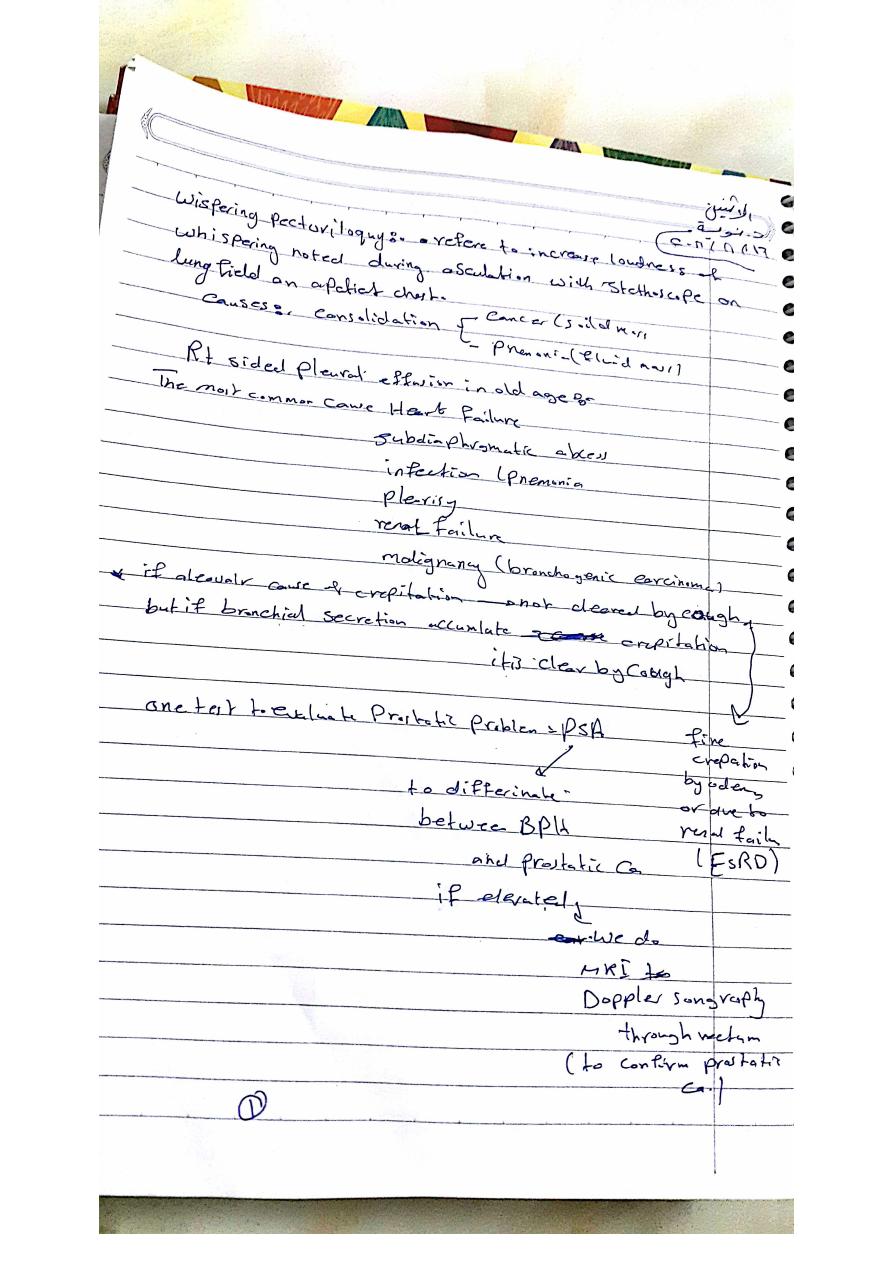 الاثنين
د. نوبة
Wispering pecturiloquy:- refere to increase loudness of
whispering noted during asculation with stethoscope on
lung field on a patiet chest.
Causes:- consolidation - Cancer (soild mass
- Pnemoni- (fluid mass)
Rt sided pleural effusion in old age:-
The most common cause Heart failure
subdiaphrgmatic abcess
infection (pnemonia
pleurisy
renal failure
malignancy (bronchogenic carcinoma)
* if aleoualr cause of crepitation not cleared by cough,
but if bronchial secretion accumlate crepitation
it is clear by Cough
fine
crepation
by odema
or due to
renal failu
(EsRD)
one test to evaluate Prostatic problem = PSA
to differinate
between BPH
and prostatic Ca
if elevated
We do
MRI
Doppler songraphy
through rectum
(to confirm prostatic
Ca.)
1